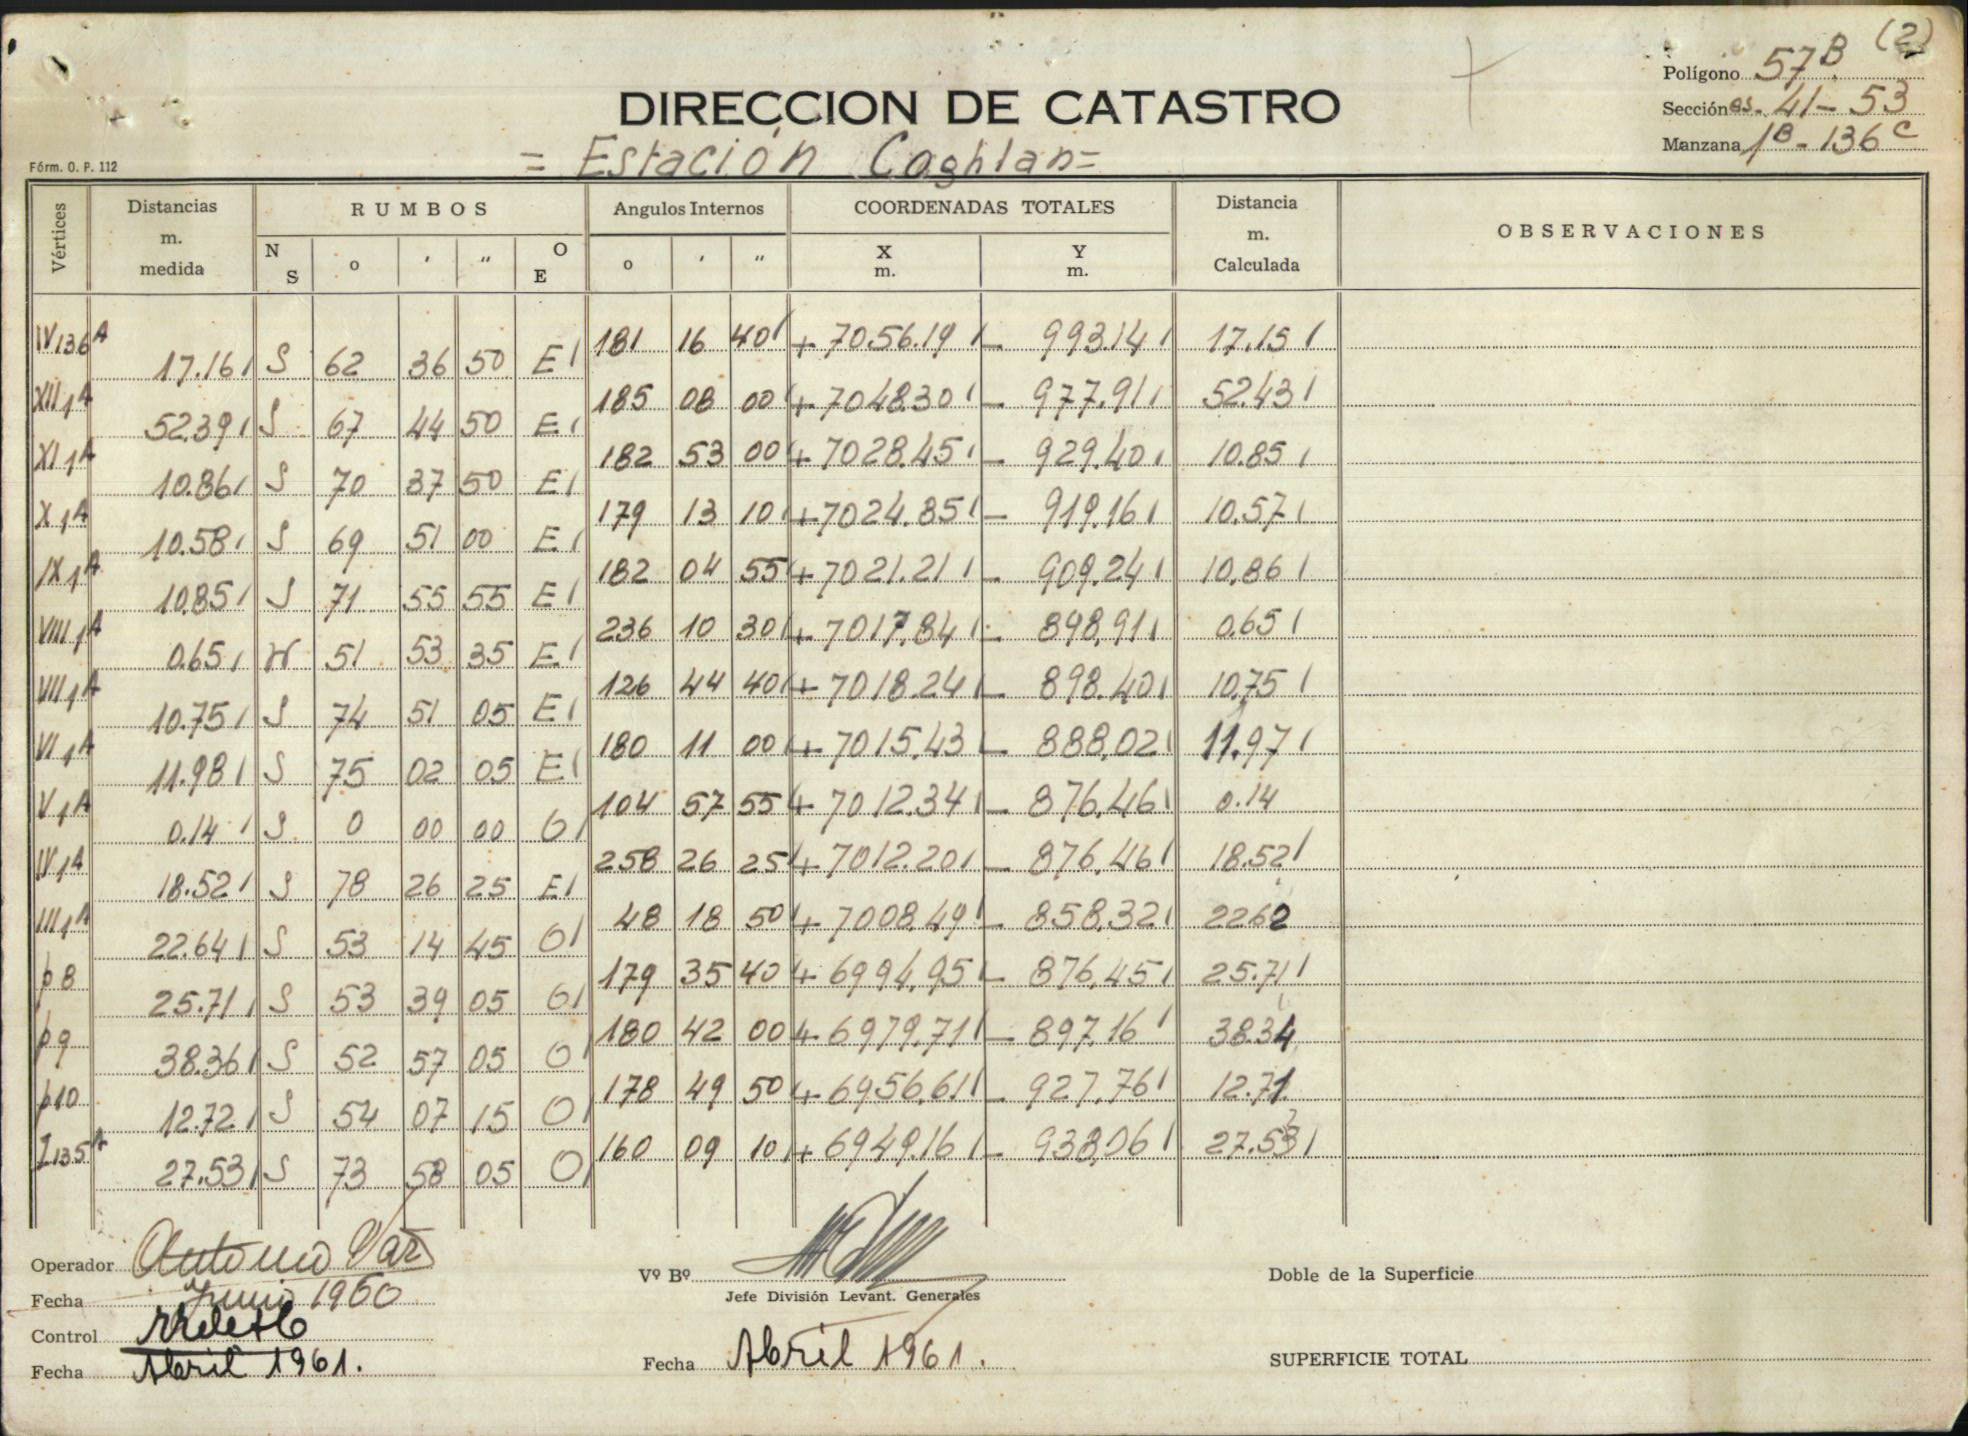 (2)
Polígono 57B
DIRECCION DE CATASTRO
Secciónes. 41-53
= Estación Coghlan =
Manzana 1B - 136C
Fórm. O. P. 112
Vértices Distancias m. medida RUMBOS Angulos Internos COORDENADAS TOTALES Distancia m. Calculada OBSERVACIONES
N S o ' " O E o ' " X m. Y m.
IV136A 181 16 40 + 7056.19 - 993.14 17.15
17.16 S 62 36 50 E
XII1A 185 08 00 + 7048.30 - 977.91 52.43
52.39 S 67 44 50 E
XI1A 182 53 00 + 7028.45 - 929.40 10.85
10.86 S 70 37 50 E
X1A 179 13 10 + 7024.85 - 919.16 10.57
10.58 S 69 51 00 E
IX1A 182 04 55 + 7021.21 - 909.24 10.86
10.85 S 71 55 55 E
VIII1A 236 10 30 + 7017.84 - 898.91 0.65
0.65 N 51 53 35 E
VII1A 126 44 40 + 7018.24 - 898.40 10.75
10.75 S 74 51 05 E
VI1A 180 11 00 + 7015.43 - 888.02 11.97
11.98 S 75 02 05 E
V1A 104 57 55 + 7012.34 - 876.46 0.14
0.14 S 0 00 00 O
IV1A 258 26 25 + 7012.20 - 876.46 18.52
18.52 S 78 26 25 E
III1A 48 18 50 + 7008.49 - 858.32 22.62
22.64 S 53 14 45 O
p8 179 35 40 + 6994.95 - 876.45 25.71
25.71 S 53 39 05 O
p9 180 42 00 + 6979.71 - 897.16 38.34
38.36 S 52 57 05 O
p10 178 49 50 + 6956.61 - 927.76 12.71
12.72 S 54 07 15 O
I135A 160 09 10 + 6949.16 - 938.06 27.53
27.53 S 73 58 05 O
Operador Antonio
Vº Bº
Doble de la Superficie
Fecha Junio 1960
Jefe División Levant. Generales
Control
Fecha Abril 1961.
Fecha Abril 1961.
SUPERFICIE TOTAL